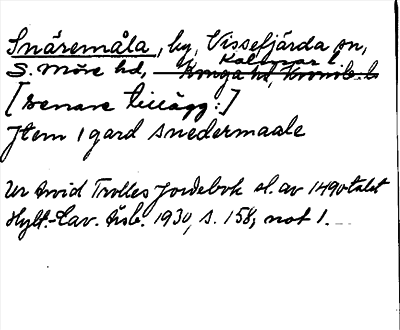 Snäremåla, by, Vissefjärda sn,
S. Möre hd, Kalmar l.
Konga hd, Kronob. l.
[senare tillägg:]
Item 1 gard snedermaale
Ur Arvid Trolles Jordebok sl. av 1490-talet
Hylt.-Cav. Årsb. 1930, s. 158, not 1.